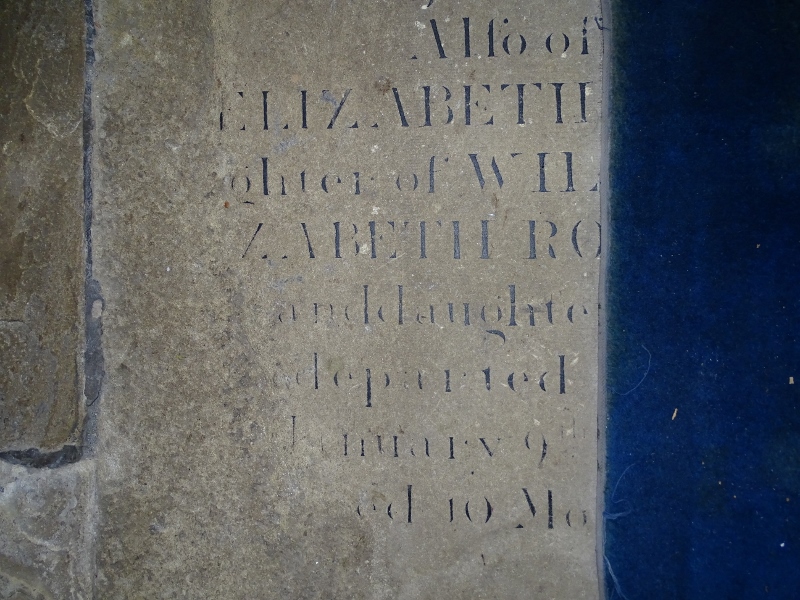 Alſo of
ELIZABETH
ghter of WIL
ZABETH RO
anddaughte
departed
January 9th
ed 10 Mo